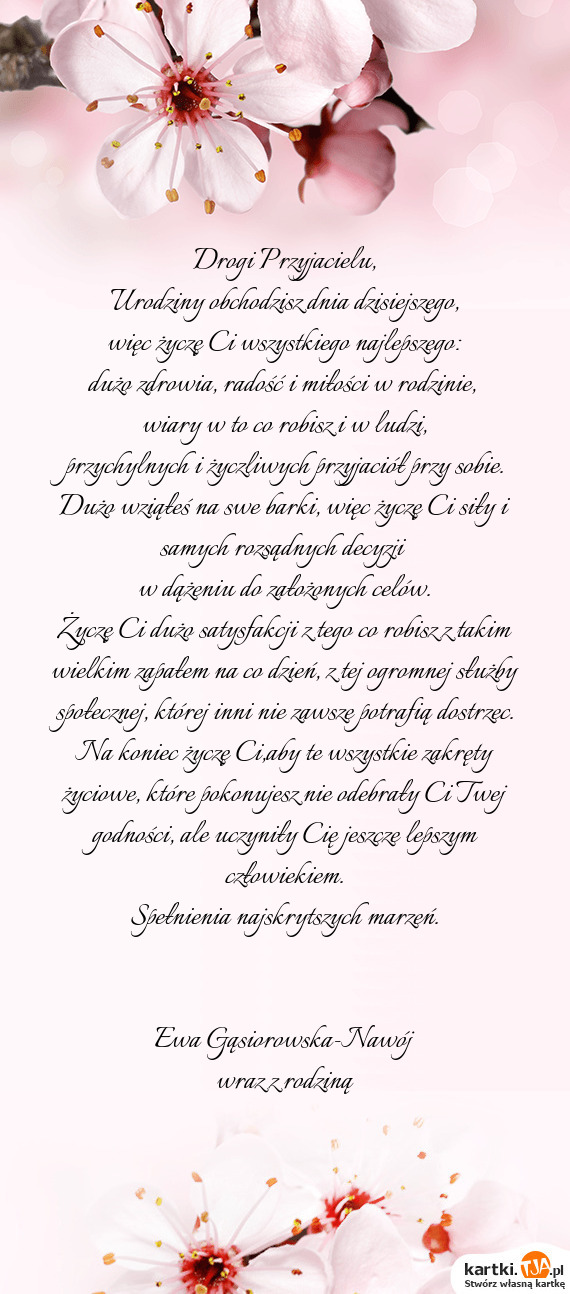 Drogi Przyjacielu,
Urodziny obchodzisz dnia dzisiejszego,
więc życzę Ci wszystkiego najlepszego:
dużo zdrowia, radość i miłości w rodzinie,
wiary w to co robisz i w ludzi,
przychylnych i życzliwych przyjaciół przy sobie.
Dużo wziąłeś na swe barki, więc życzę Ci siły i
samych rozsądnych decyzji
w dążeniu do założonych celów.
Życzę Ci dużo satysfakcji z tego co robisz z takim
wielkim zapałem na co dzień, z tej ogromnej służby
społecznej, której inni nie zawsze potrafią dostrzec.
Na koniec życzę Ci,aby te wszystkie zakręty
życiowe, które pokonujesz nie odebrały Ci Twej
godności, ale uczyniły Cię jeszcze lepszym
człowiekiem.
Spełnienia najskrytszych marzeń.
Ewa Gąsiorowska-Nawój
wraz z rodziną
kartki.TJA.pl
Stwórz własną kartkę